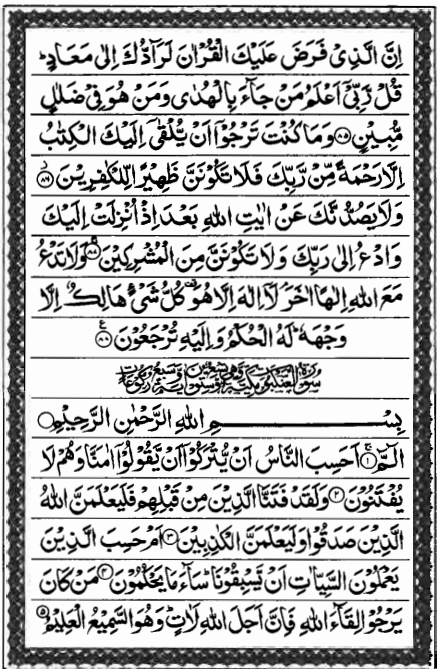 اِنَّ الَّذِىْ فَرَضَ عَلَيْكَ الْقُرْاٰنَ لَرَآدُّكَ اِلٰى مَعَادٍ ؕ
قُلْ رَّبِّىْٓ اَعْلَمُ مَنْ جَآءَ بِالْهُدٰى وَمَنْ هُوَ فِىْ ضَلٰلٍ
مُّبِيْنٍ ﴿۸۵﴾ وَمَا كُنْتَ تَرْجُوْٓا اَنْ يُّلْقٰٓى اِلَيْكَ الْكِتٰبُ
اِلَّا رَحْمَةً مِّنْ رَّبِّكَ فَلَا تَكُوْنَنَّ ظَهِيْرًا لِّلْكٰفِرِيْنَ ﴿۸۶﴾
وَلَا يَصُدُّنَّكَ عَنْ اٰيٰتِ اللّٰهِ بَعْدَ اِذْ اُنْزِلَتْ اِلَيْكَ
وَادْعُ اِلٰى رَبِّكَ وَلَا تَكُوْنَنَّ مِنَ الْمُشْرِكِيْنَ ﴿۸۷﴾ وَلَا تَدْعُ
مَعَ اللّٰهِ اِلٰهًا اٰخَرَ ۘ لَاۤ اِلٰهَ اِلَّا هُوَ ۫ كُلُّ شَىْءٍ هَالِكٌ اِلَّا
وَجْهَهٗ ؕ لَهُ الْحُكْمُ وَاِلَيْهِ تُرْجَعُوْنَ ﴿۸۸﴾
سُوْرَةُ الْعَنْكَبُوْتِ مَكِّيَّةٌ وَّهِىَ تِسْعٌ وَّسِتُّوْنَ اٰيَةً وَّسَبْعُ رُكُوْعَاتٍ
بِسْمِ اللّٰهِ الرَّحْمٰنِ الرَّحِيْمِ
الٓمّٓ ﴿۱﴾ اَحَسِبَ النَّاسُ اَنْ يُّتْرَكُوْٓا اَنْ يَّقُوْلُوْٓا اٰمَنَّا وَهُمْ لَا
يُفْتَنُوْنَ ﴿۲﴾ وَلَقَدْ فَتَنَّا الَّذِيْنَ مِنْ قَبْلِهِمْ فَلَيَعْلَمَنَّ اللّٰهُ
الَّذِيْنَ صَدَقُوْا وَلَيَعْلَمَنَّ الْكٰذِبِيْنَ ﴿۳﴾ اَمْ حَسِبَ الَّذِيْنَ
يَعْمَلُوْنَ السَّيِّاٰتِ اَنْ يَّسْبِقُوْنَا ؕ سَآءَ مَا يَحْكُمُوْنَ ﴿۴﴾ مَنْ كَانَ
يَرْجُوْا لِقَآءَ اللّٰهِ فَاِنَّ اَجَلَ اللّٰهِ لَاٰتٍ ؕ وَهُوَ السَّمِيْعُ الْعَلِيْمُ ﴿۵﴾